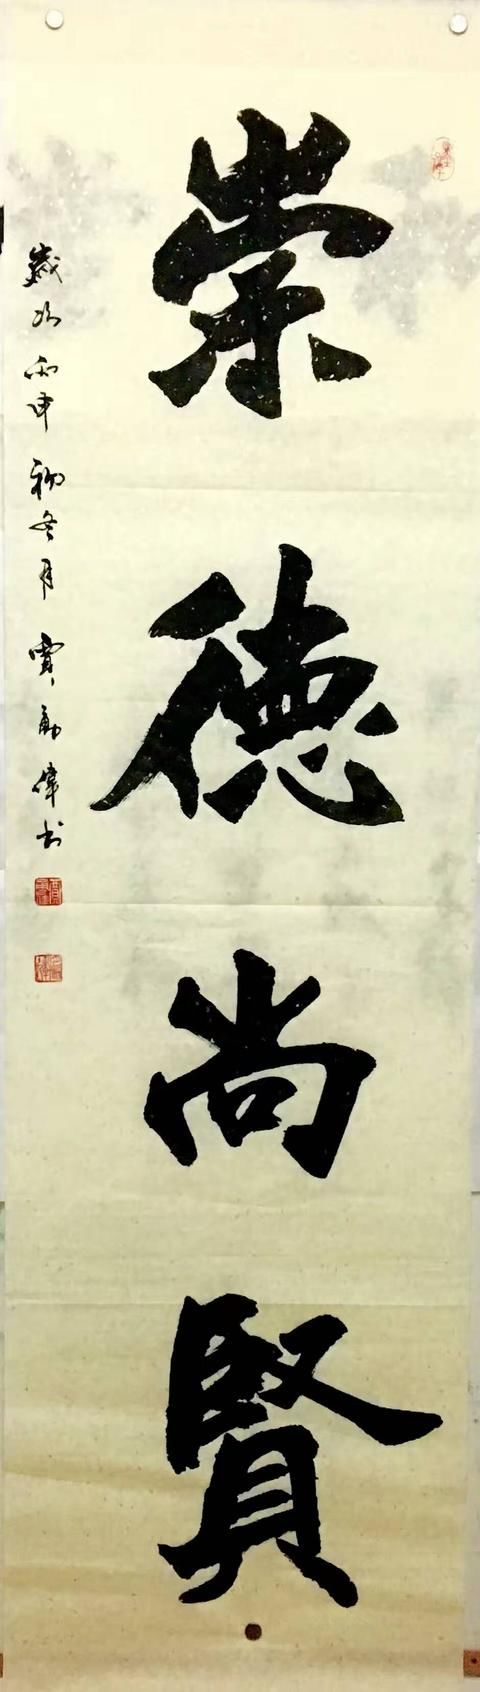 崇德尚賢
歲次丙申初冬月賈勇偉书